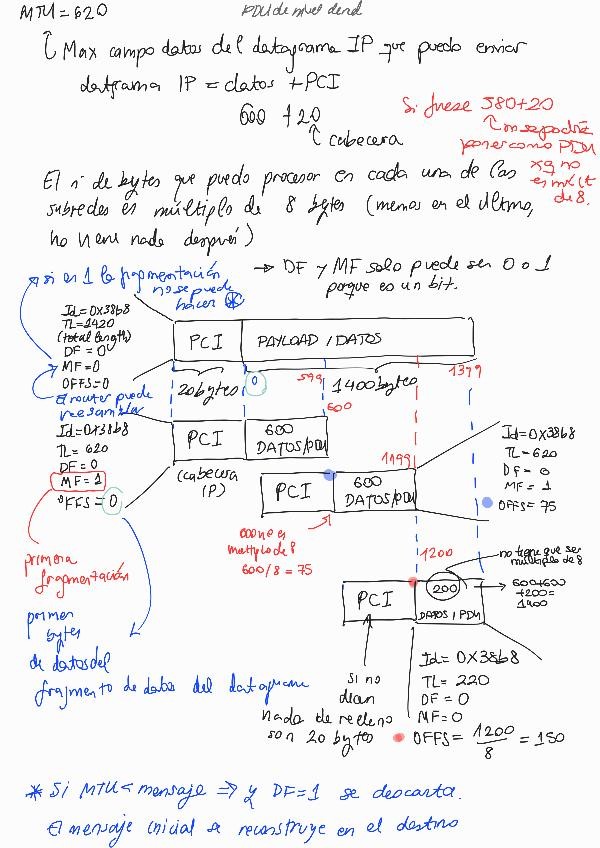 MTU = 620
PDU de nivel de red
Max campo datos del datagrama IP que puedo enviar
datgrama IP = datos + PCI
600 + 20
cabecera
Si fuese 580+20
no se podría
poner como PDU
xq no
es múlt
de 8.
El nº de bytes que puedo procesar en cada una de las
subredes es múltiplo de 8 bytes (menos en el último,
no tiene nada después)
si es 1 la fragmentación
no se puede
hacer *
→ DF y MF solo puede ser 0 o 1
porque es un bit.
Id = 0X38b8
TL = 1420
(total length)
DF = 0
MF = 0
OFFS = 0
El router puede
reensamblar
PCI
PAYLOAD / DATOS
20 bytes
0
599
1400 bytes
1399
600
Id = 0X38b8
TL = 620
DF = 0
MF = 1
OFFS = 0
PCI
600
DATOS/PDU
(cabecera
IP)
1199
PCI
600
DATOS/PDU
Id = 0X38b8
TL = 620
DF = 0
MF = 1
OFFS = 75
600 no es
multiplo de 8
600/8 = 75
primera
fragmentación
primer
bytes
de datos del
fragmento de datos del datagrama
1200
no tiene que ser
múltiplo de 8
PCI
200
DATOS / PDU
600+600
+200 =
1400
si no
dicen
nada de relleno
son 20 bytes
Id = 0X38b8
TL = 220
DF = 0
MF = 0
OFFS = 1200/8 = 150
* Si MTU < mensaje ⇒ y DF=1 se descarta.
El mensaje inicial se reconstruye en el destino